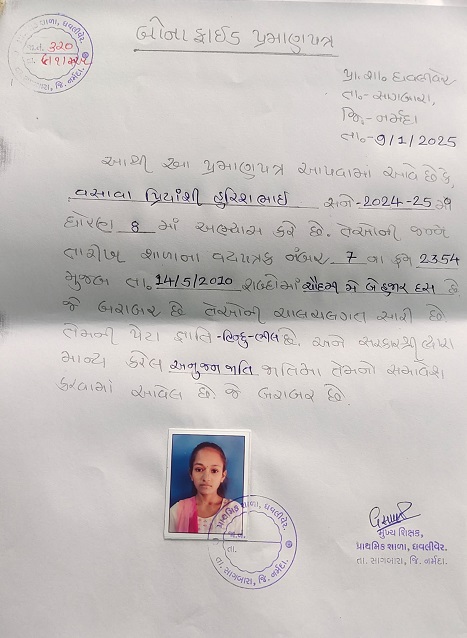 બોનાફાઈડ પ્રમાણપત્ર
પ્રા. શાળા, ધવલીવેર.
જા.નં. ૩૨૦
તા.
તા. સાગબારા, જિ. નર્મદા.
પ્રા.શા. ધવલીવેર
તા.- સાગબારા,
જિ.- નર્મદા
તા.- 9/1/2025
આથી આ પ્રમાણપત્ર આપવામાં આવે છે કે,
વસાવા પ્રિયાંશી હરિશભાઈ સને -2024-25 માં
ધોરણ 8 માં અભ્યાસ કરે છે. તેઓની જન્મ
તારીખ શાળાના વયપત્રક નંબર 7 ના ક્રમ 2354
મુજબ તા. 14/5/2010 શબ્દોમાં ચૌદમી મે બે હજાર દસ છે
જે બરાબર છે તેઓની ચાલચલગત સારી છે
તેમની પેટા જ્ઞાતિ -હિન્દુ-ભીલ છે. અને સરકારશ્રી દ્વારા
માન્ય કરેલ અનુજન જાતિ જાતિમાં તેમનો સમાવેશ
કરવામાં આવેલ છે. જે બરાબર છે.
પ્રાથમિક શાળા, ધવલીવેર.
જા.નં.
તા.
તા. સાગબારા, જિ. નર્મદા.
મુખ્ય શિક્ષક,
પ્રાથમિક શાળા, ધવલીવેર.
તા. સાગબારા, જિ. નર્મદા.